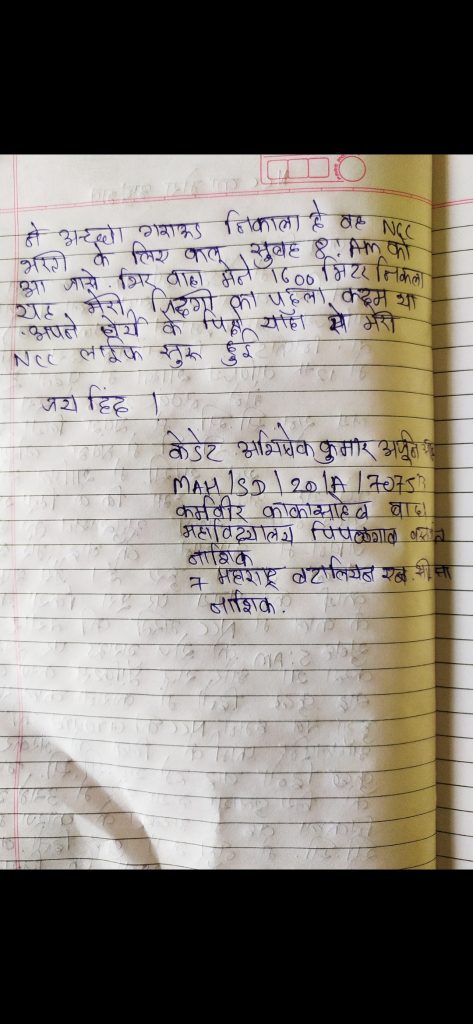 ने अच्छा गराऊंड निकाला है वह NCC
भरती के लिए कल सुबह 8: AM को
आ जाये. फिर वाहा मेने 1600 मिटर निकला
यह मेरी जिंदगी का पहला कदम था
अपने के यहा से मेरी
NCC लाईफ सुरू हुई
जय हिंद ।
केडेट अभिषेक कुमार
MAH/SD/20/A/70753
कर्मवीर काकासाहेब वाघ
महाविद्यालय पिंपळगाव
नाशिक
7 महाराष्ट्र बटालियन एन. सी
नाशिक.